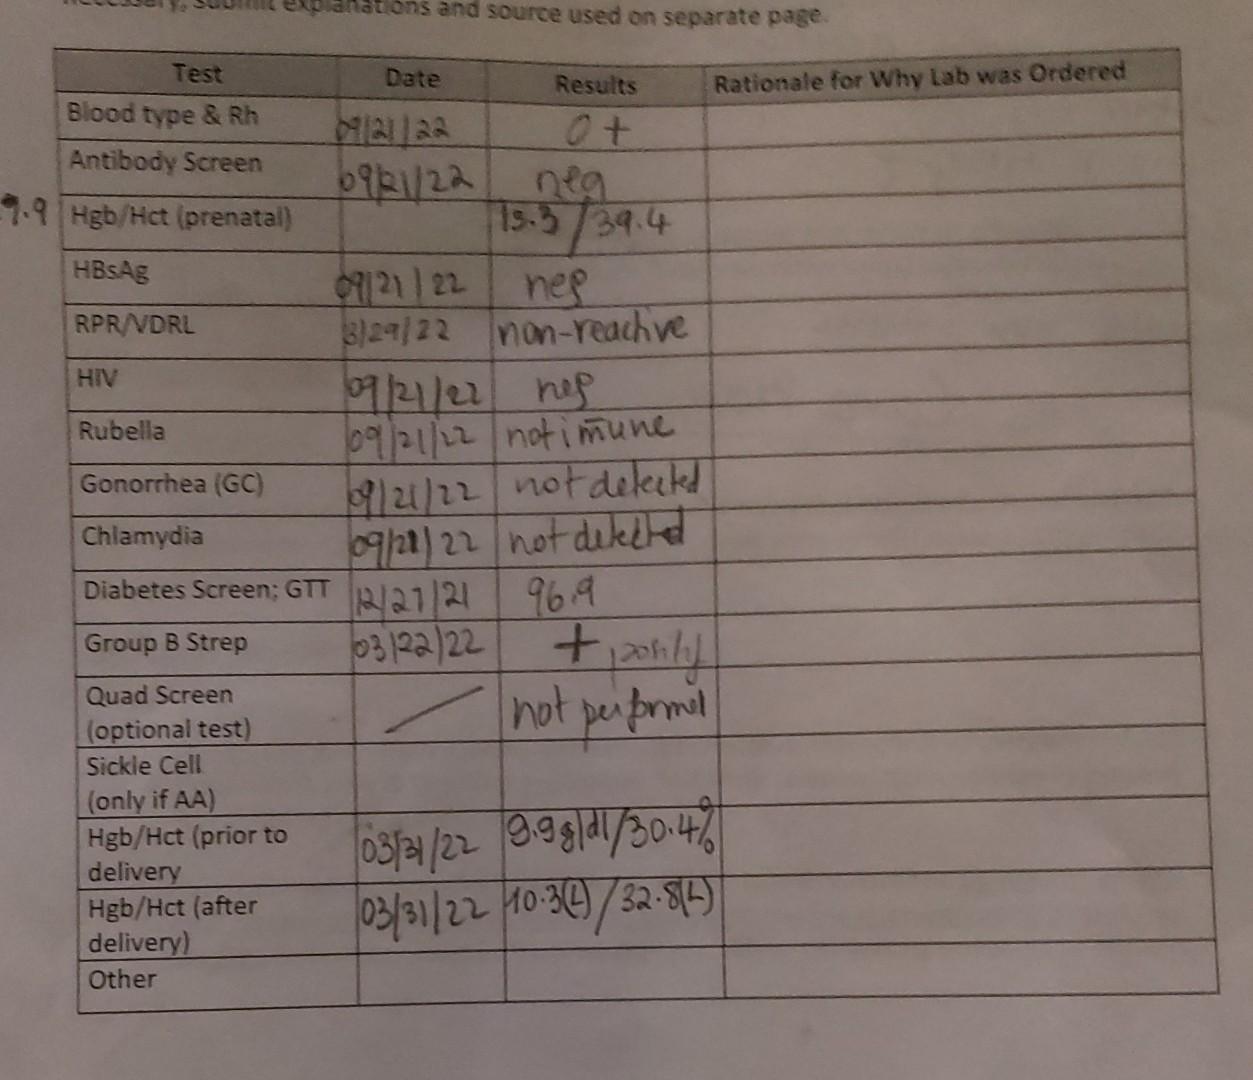 submit explanations and source used on separate page.
Test Date Results Rationale for Why Lab was Ordered
Blood type & Rh 09/21/22 O +
Antibody Screen 09/21/22 neg
9.9 Hgb/Hct (prenatal) 13.3 / 39.4
HBsAg 09/21/22 neg
RPR/VDRL 3/29/22 non-reactive
HIV 09/21/22 neg
Rubella 09/21/22 not imune
Gonorrhea (GC) 09/21/22 not detected
Chlamydia 09/21/22 not detected
Diabetes Screen; GTT 12/27/21 96.9
Group B Strep 03/22/22 +
Quad Screen
(optional test) / not performed
Sickle Cell
(only if AA)
Hgb/Hct (prior to
delivery 03/31/22 9.9 g/dl/30.4%
Hgb/Hct (after
delivery) 03/31/22 10.3(L) / 32.8(L)
Other